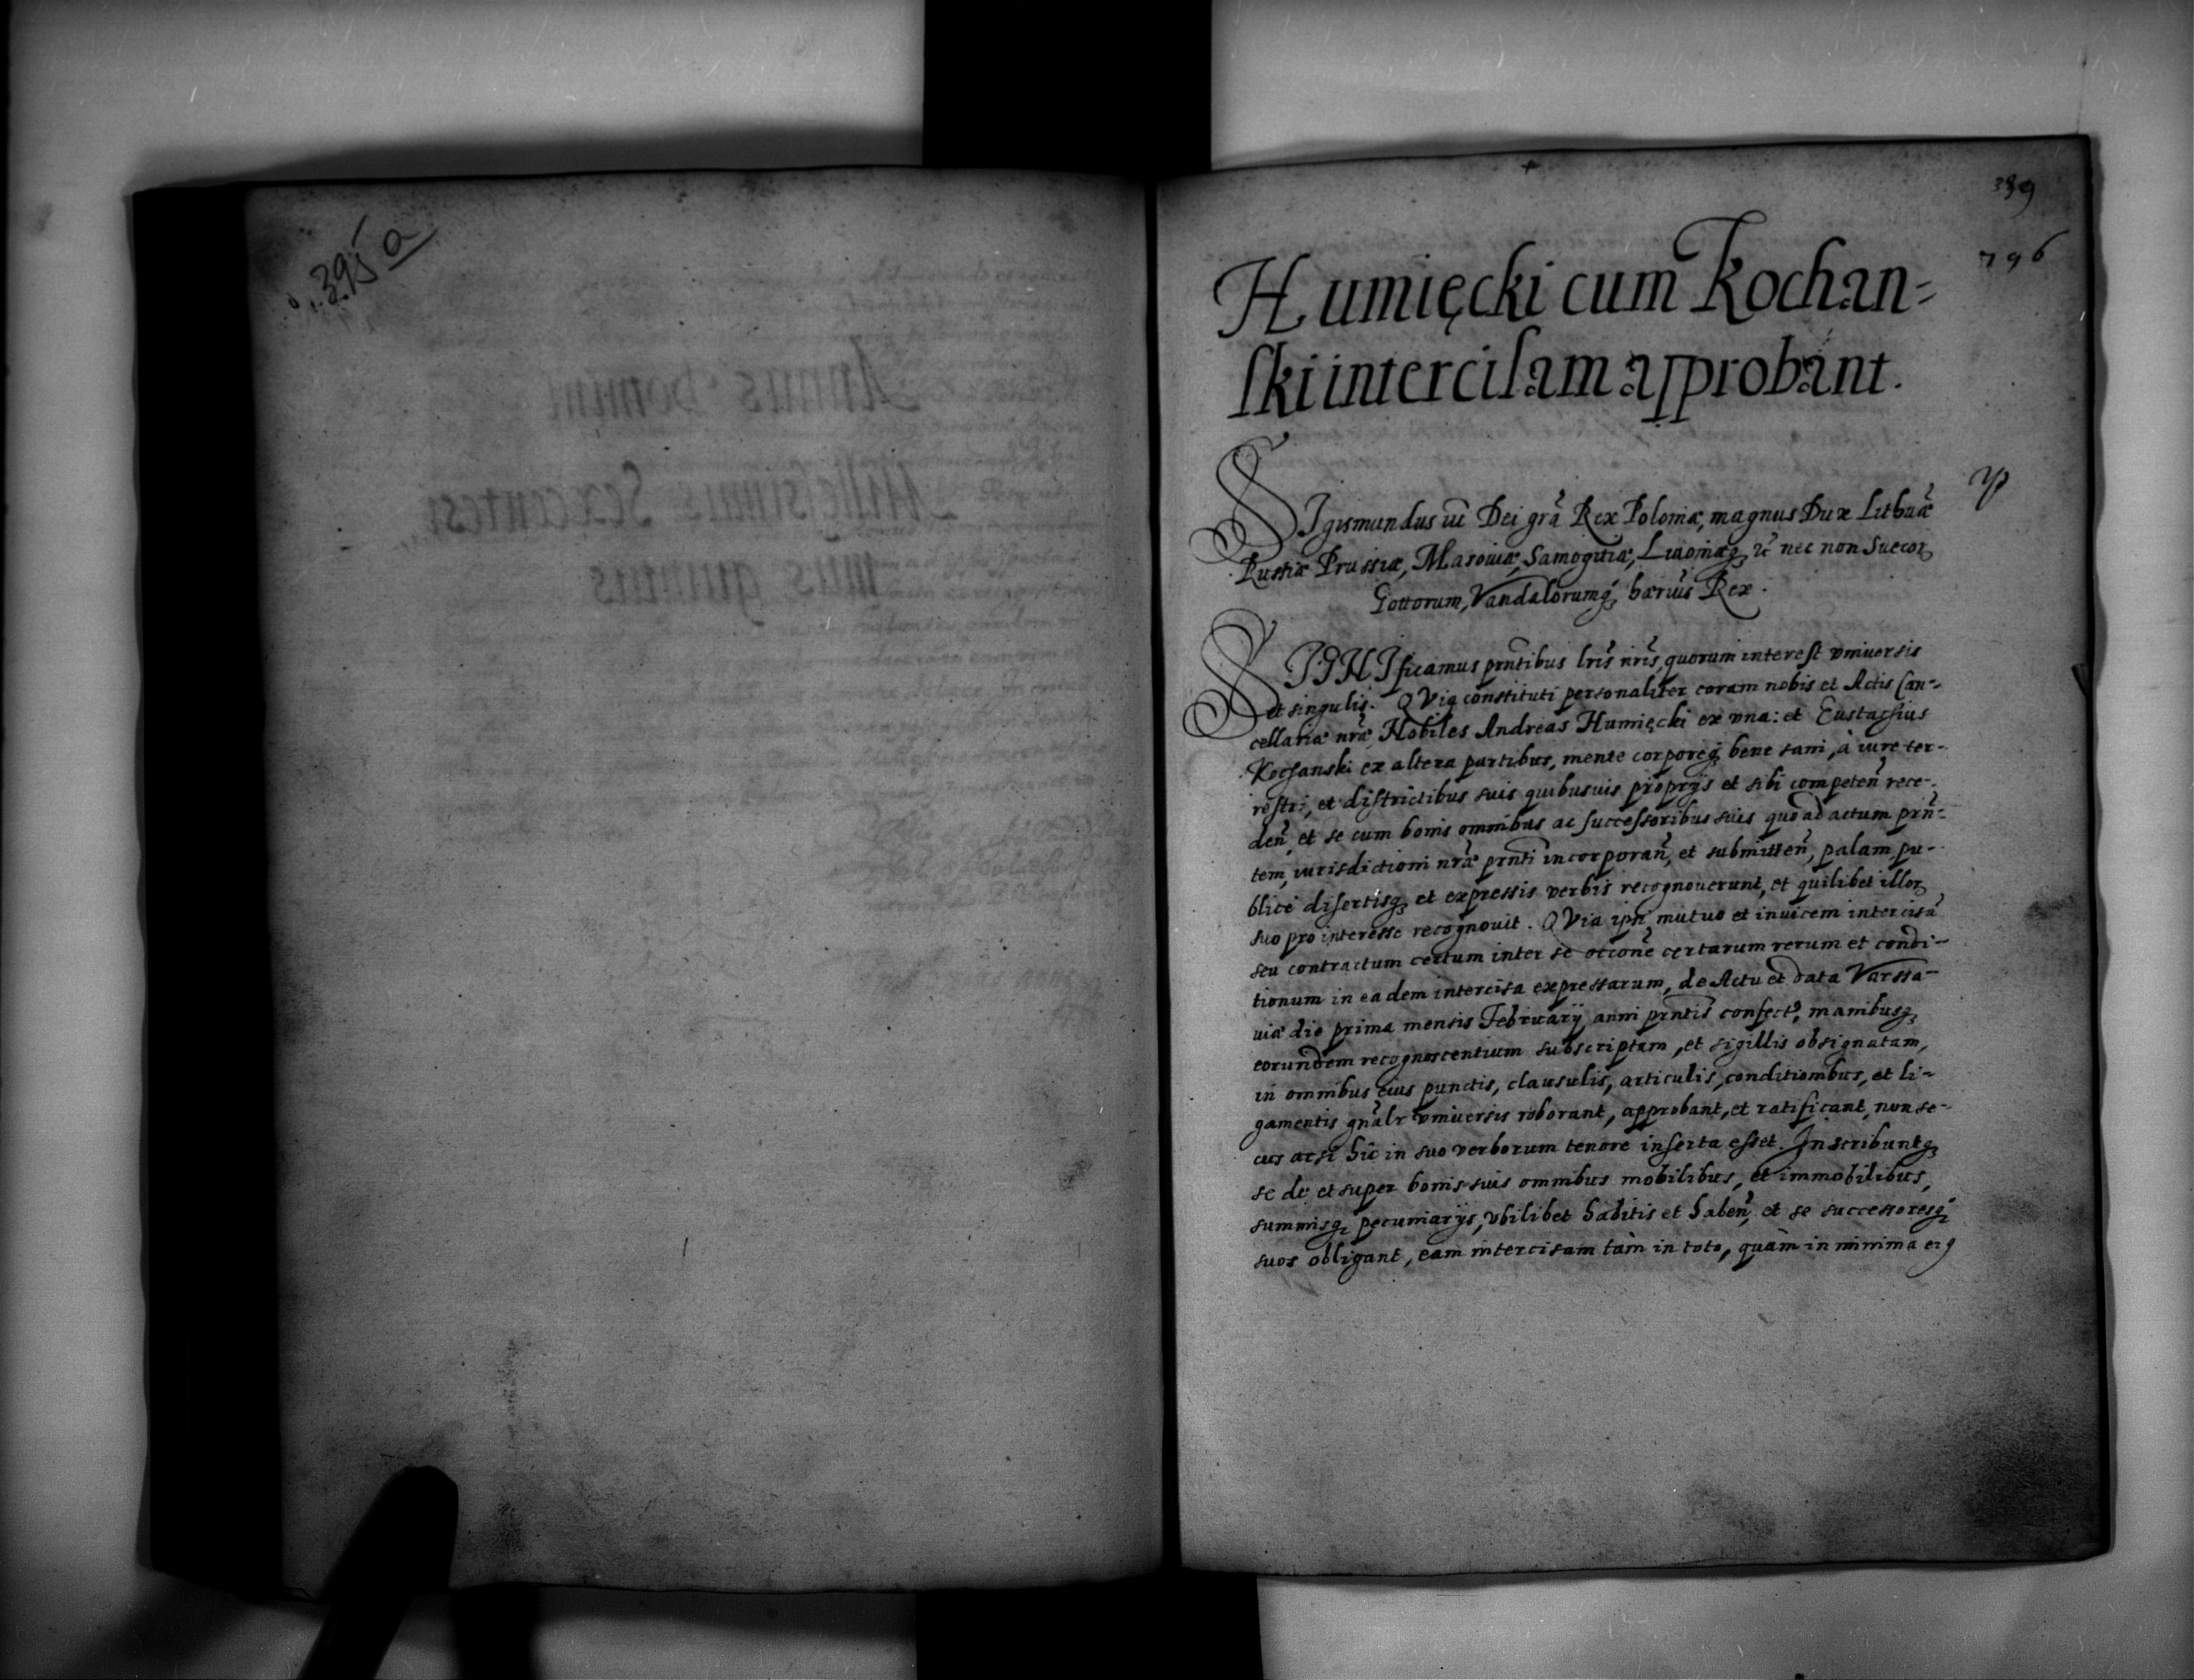 395 a
389
796
Humięcki cum Kochan=
ski intercisam approbant.
SIgismundus iii Dei gra Rex Poloniæ, magnus Dux Lithuæ
Russiæ Prussiæ, Masoviæ, Samogitiæ, Livoniæq₃ &c nec non Suecor
Gottorum, Vandalorumq₃ hærius Rex.
SIGNIficamus prntibus lris nris, quorum interest vniuersis
et singulis. QVia constituti personaliter coram nobis et Actis Can-
cellariæ nræ, Nobiles Andreas Humięcki ex vna: et Eustachius
Kochanski ex altera partibus, mente corporeq₃ bene sani, à iure ter-
restri, et districtibus suis quibusuis proprijs et sibi competen rece-
den, et se cum bonis omnibus ac successoribus suis quo ad actum prn-
tem, iurisdictioni nræ prnti incorporan, et submitten, palam pu-
blicé disertisq₃ et expressis verbis recognouerunt, et quilibet illor
suo pro interesse recognouit. QVia ipsi mutuo et inuicem intercisa
seu contractum certum inter se occone certarum rerum et condi-
tionum in eadem intercisa expressarum, de Actu et data Varssa-
uiæ die prima mensis February anni prntis confect, manibusq₃
eorundem recognoscentium subscriptam, et sigillis obsignatam,
in omnibus eius punctis, clausulis, articulis, conditionibus, et li-
gamentis gnalr vniuersis roborant, approbant, et ratificant, non se-
cus ac si hic in suo verborum tenore inserta esset. Inscribuntq₃
se de et super bonis suis omnibus mobilibus, et immobilibus,
summisq₃ pecuniarijs, vbilibet habitis et haben, et se successoresq₃
suos obligant, eam intercisam tàm in toto, quàm in minima ei9